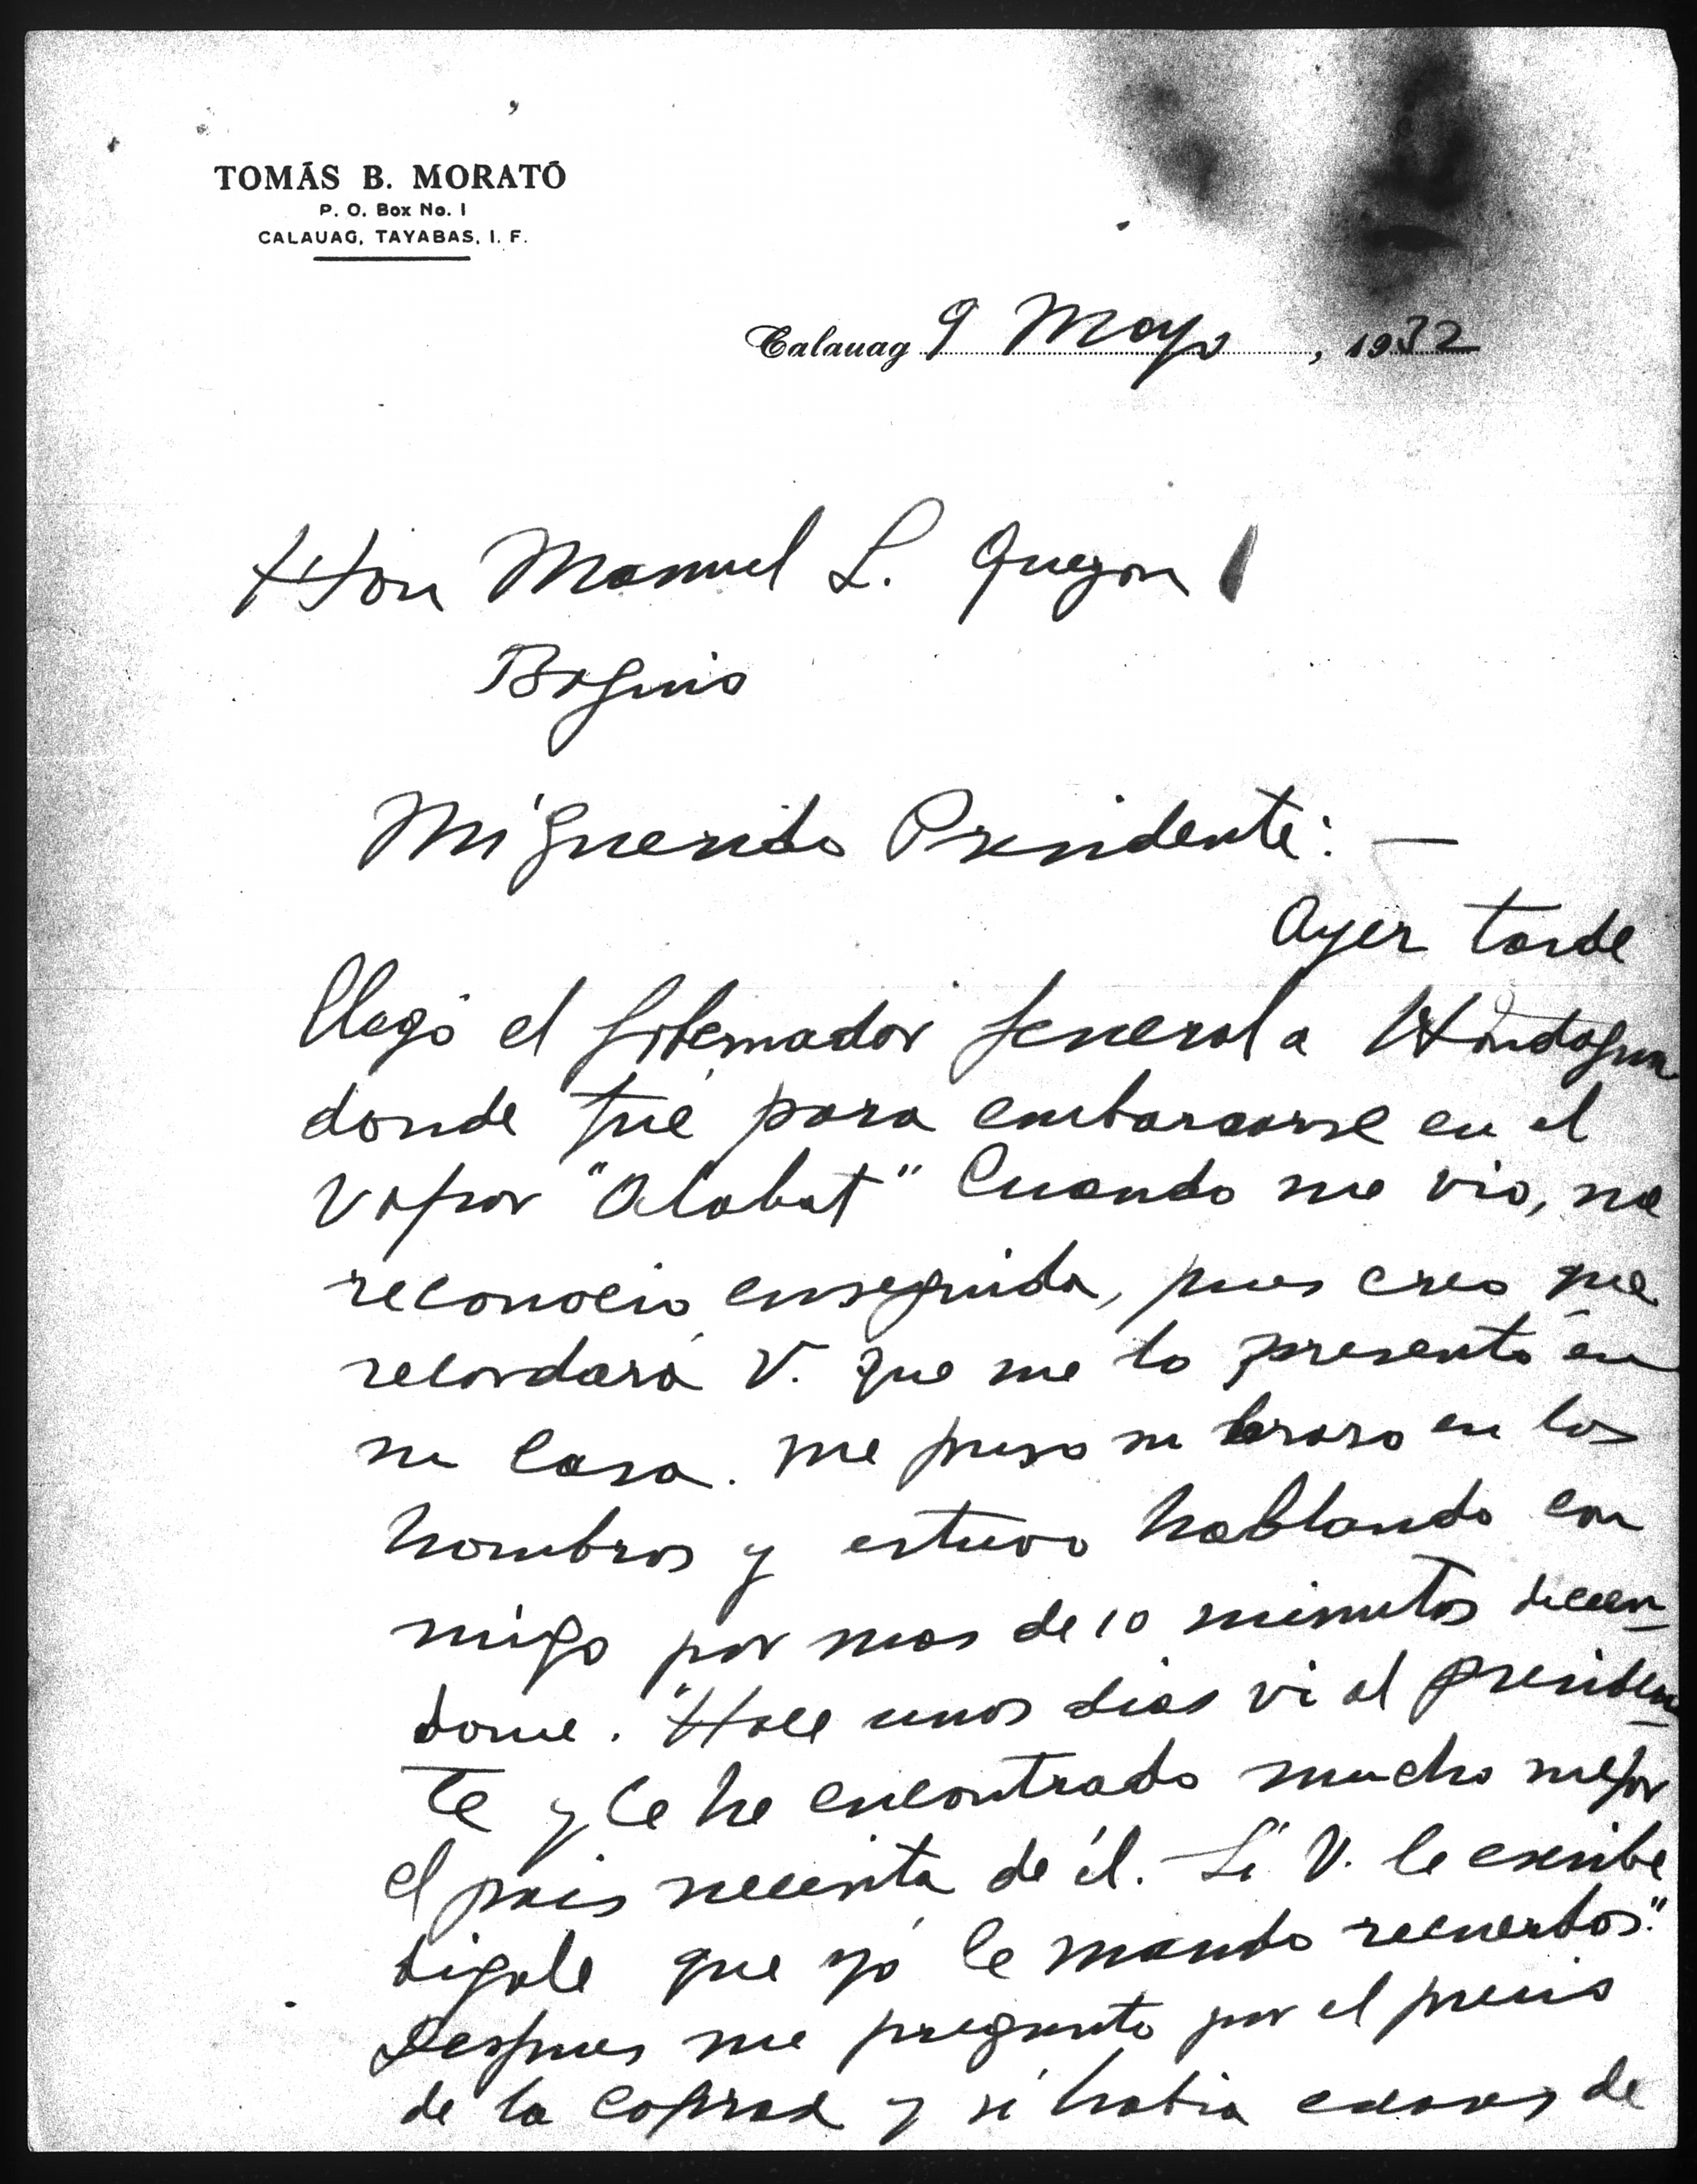 TOMÁS B. MORATÓ
P. O. Box No. 1
CALAUAG, TAYABAS, I. F.
Calauag 9 Mayo, 1932
Hon Manuel L. Quezon
Baguio
Mi querido Presidente: —
Ayer tarde
llegó el Gobernador General a Hondagua
donde fué para embarcarse en el
vapor "Alabat" Cuando me vio, me
reconocio enseguida, pues creo que
recordará V. que me lo presentó en
su casa. Me puso su braso en los
hombros y estuvo hablando con
migo por mas de 10 minutos dicien
dome. "Hace unos dias vi al presiden
te y le he encontrado mucho mejor
el pais necesita de él. Si V. le escribe
digale que yó le mando recuerdos."
Despues me pregunto por el precio
de la coprax y si habia casos de